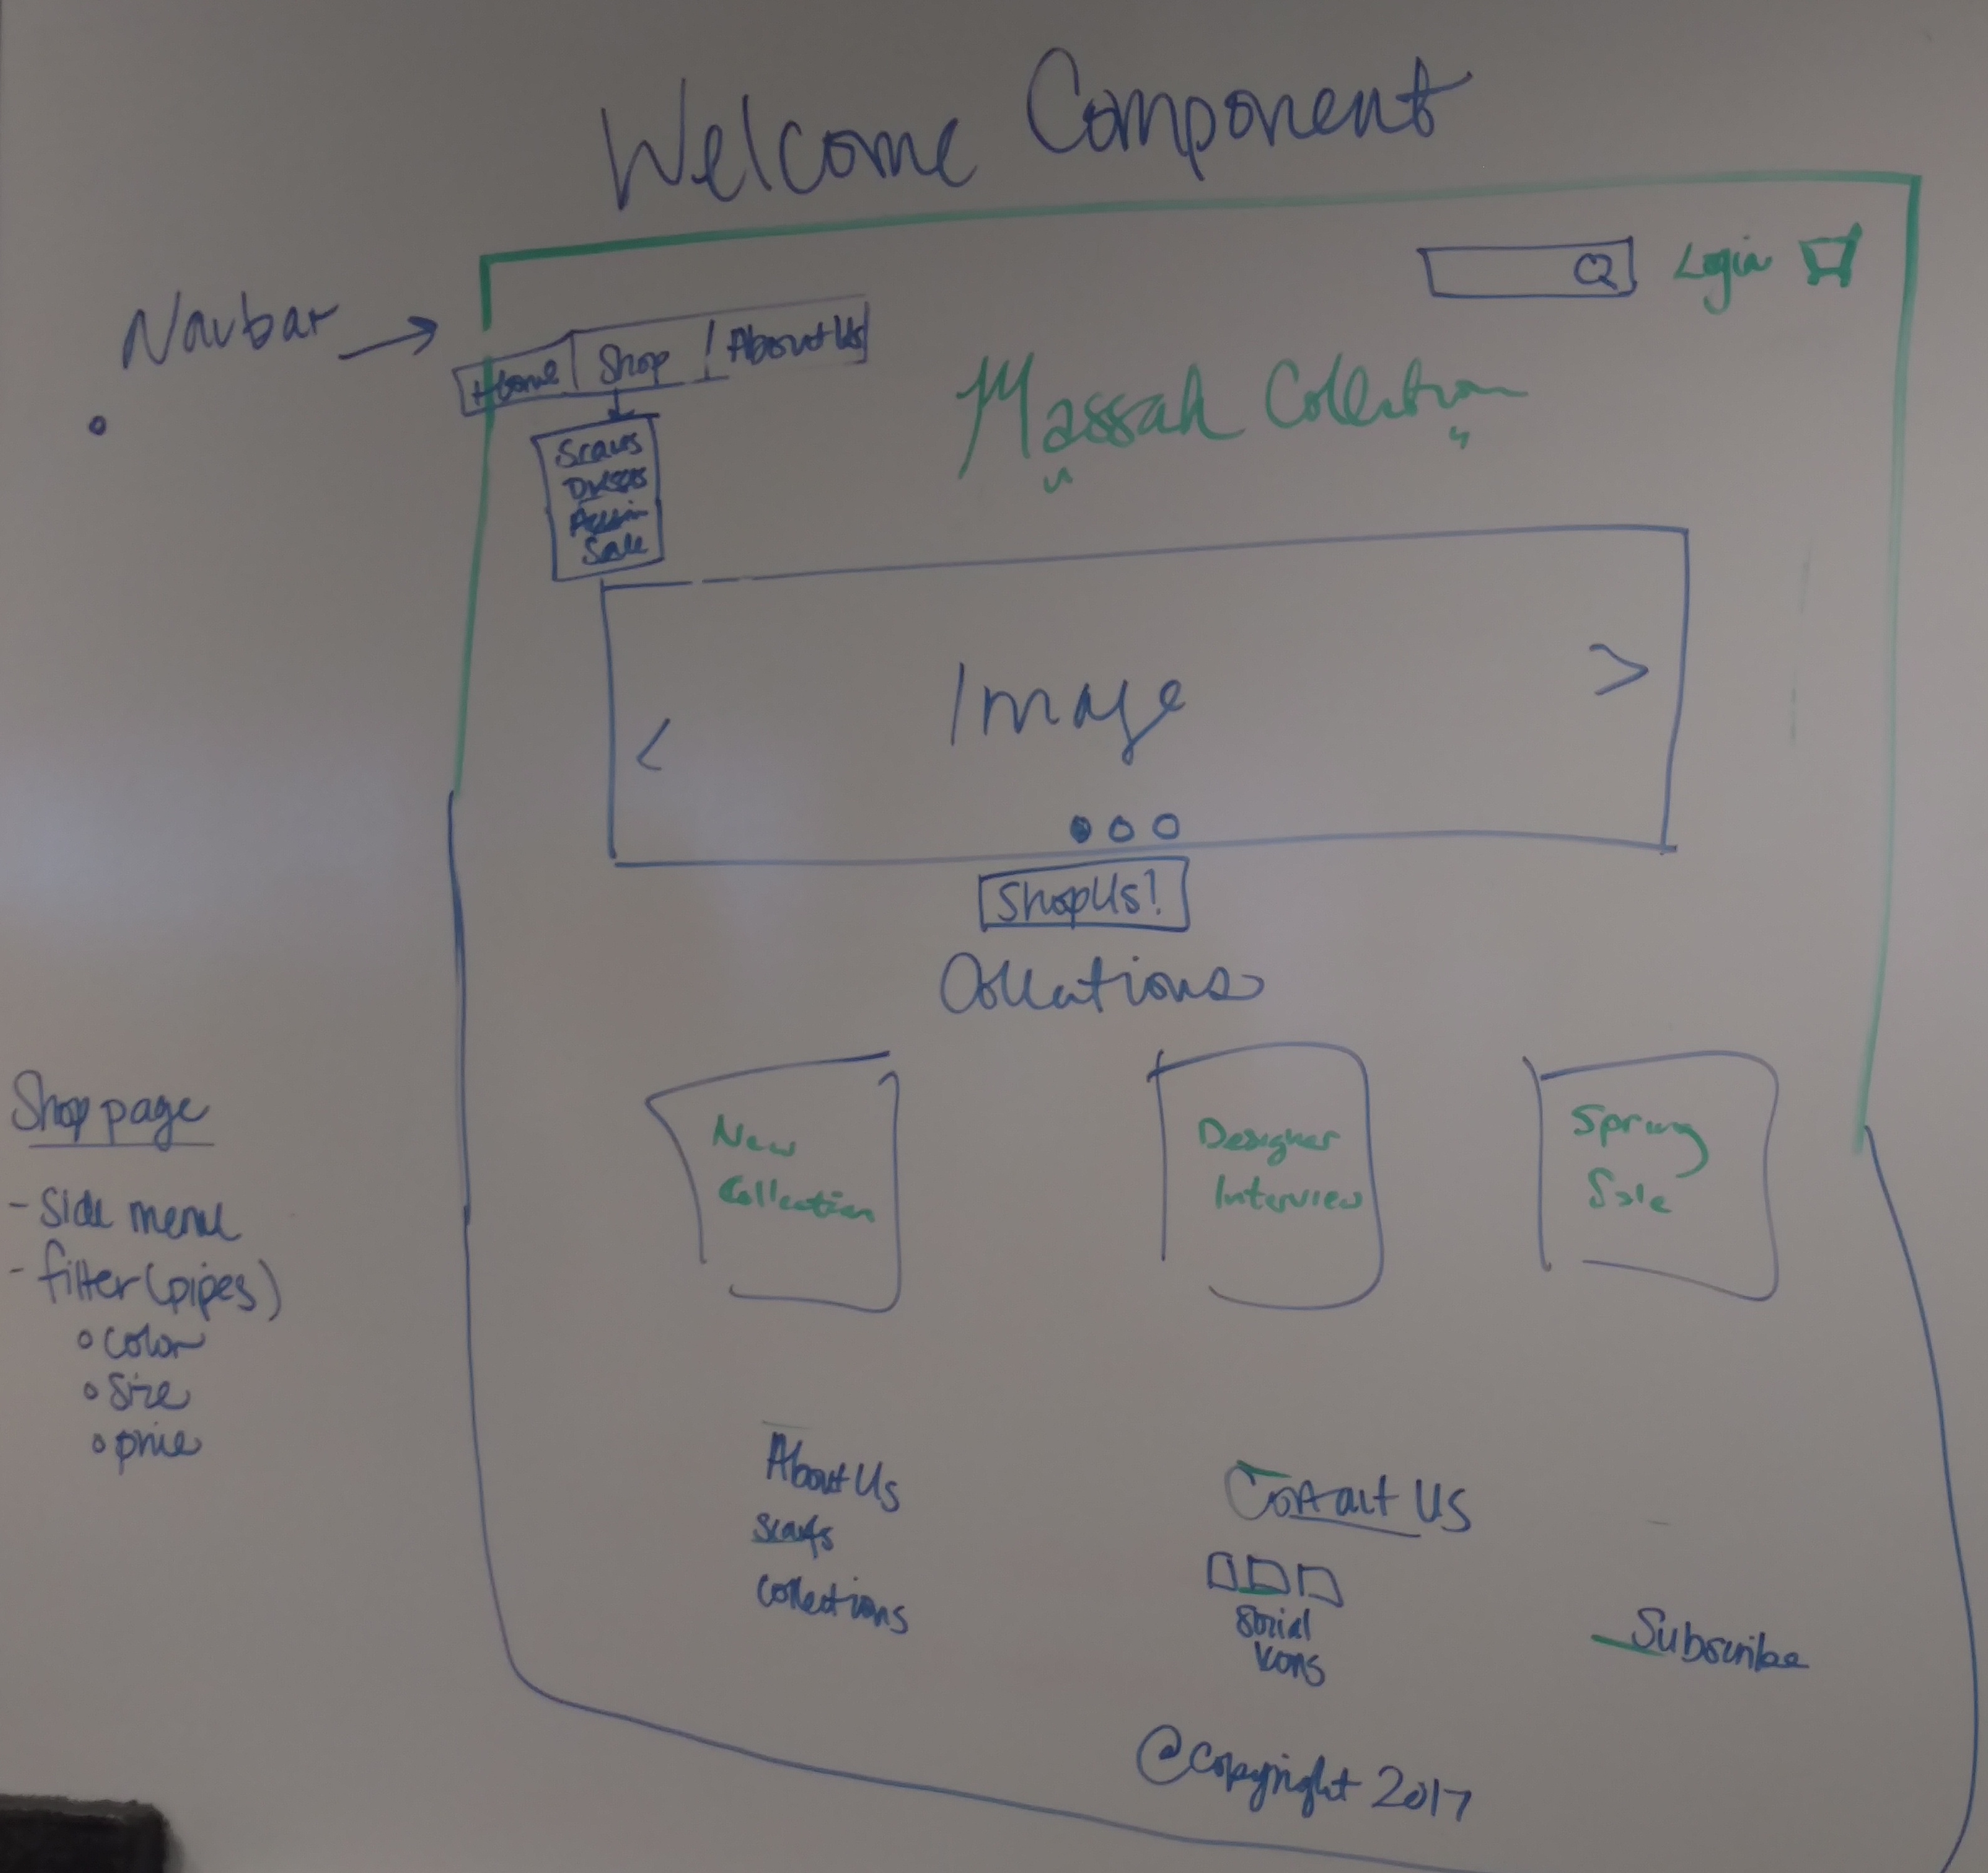 Welcome Component
Login
Navbar →
Home | Shop | About Us
Massah Collection
Scarves
Dresses
Sale
Image
< >
Shop Us!
Collections
New
Collection
Designer
Interview
Spring
Sale
Shop page
- Side menu
- filter (pipes)
∘ Color
∘ Size
∘ price
About Us
Scarfs
Collections
Contact Us
Social
Icons
Subscribe
@Copyright 2017